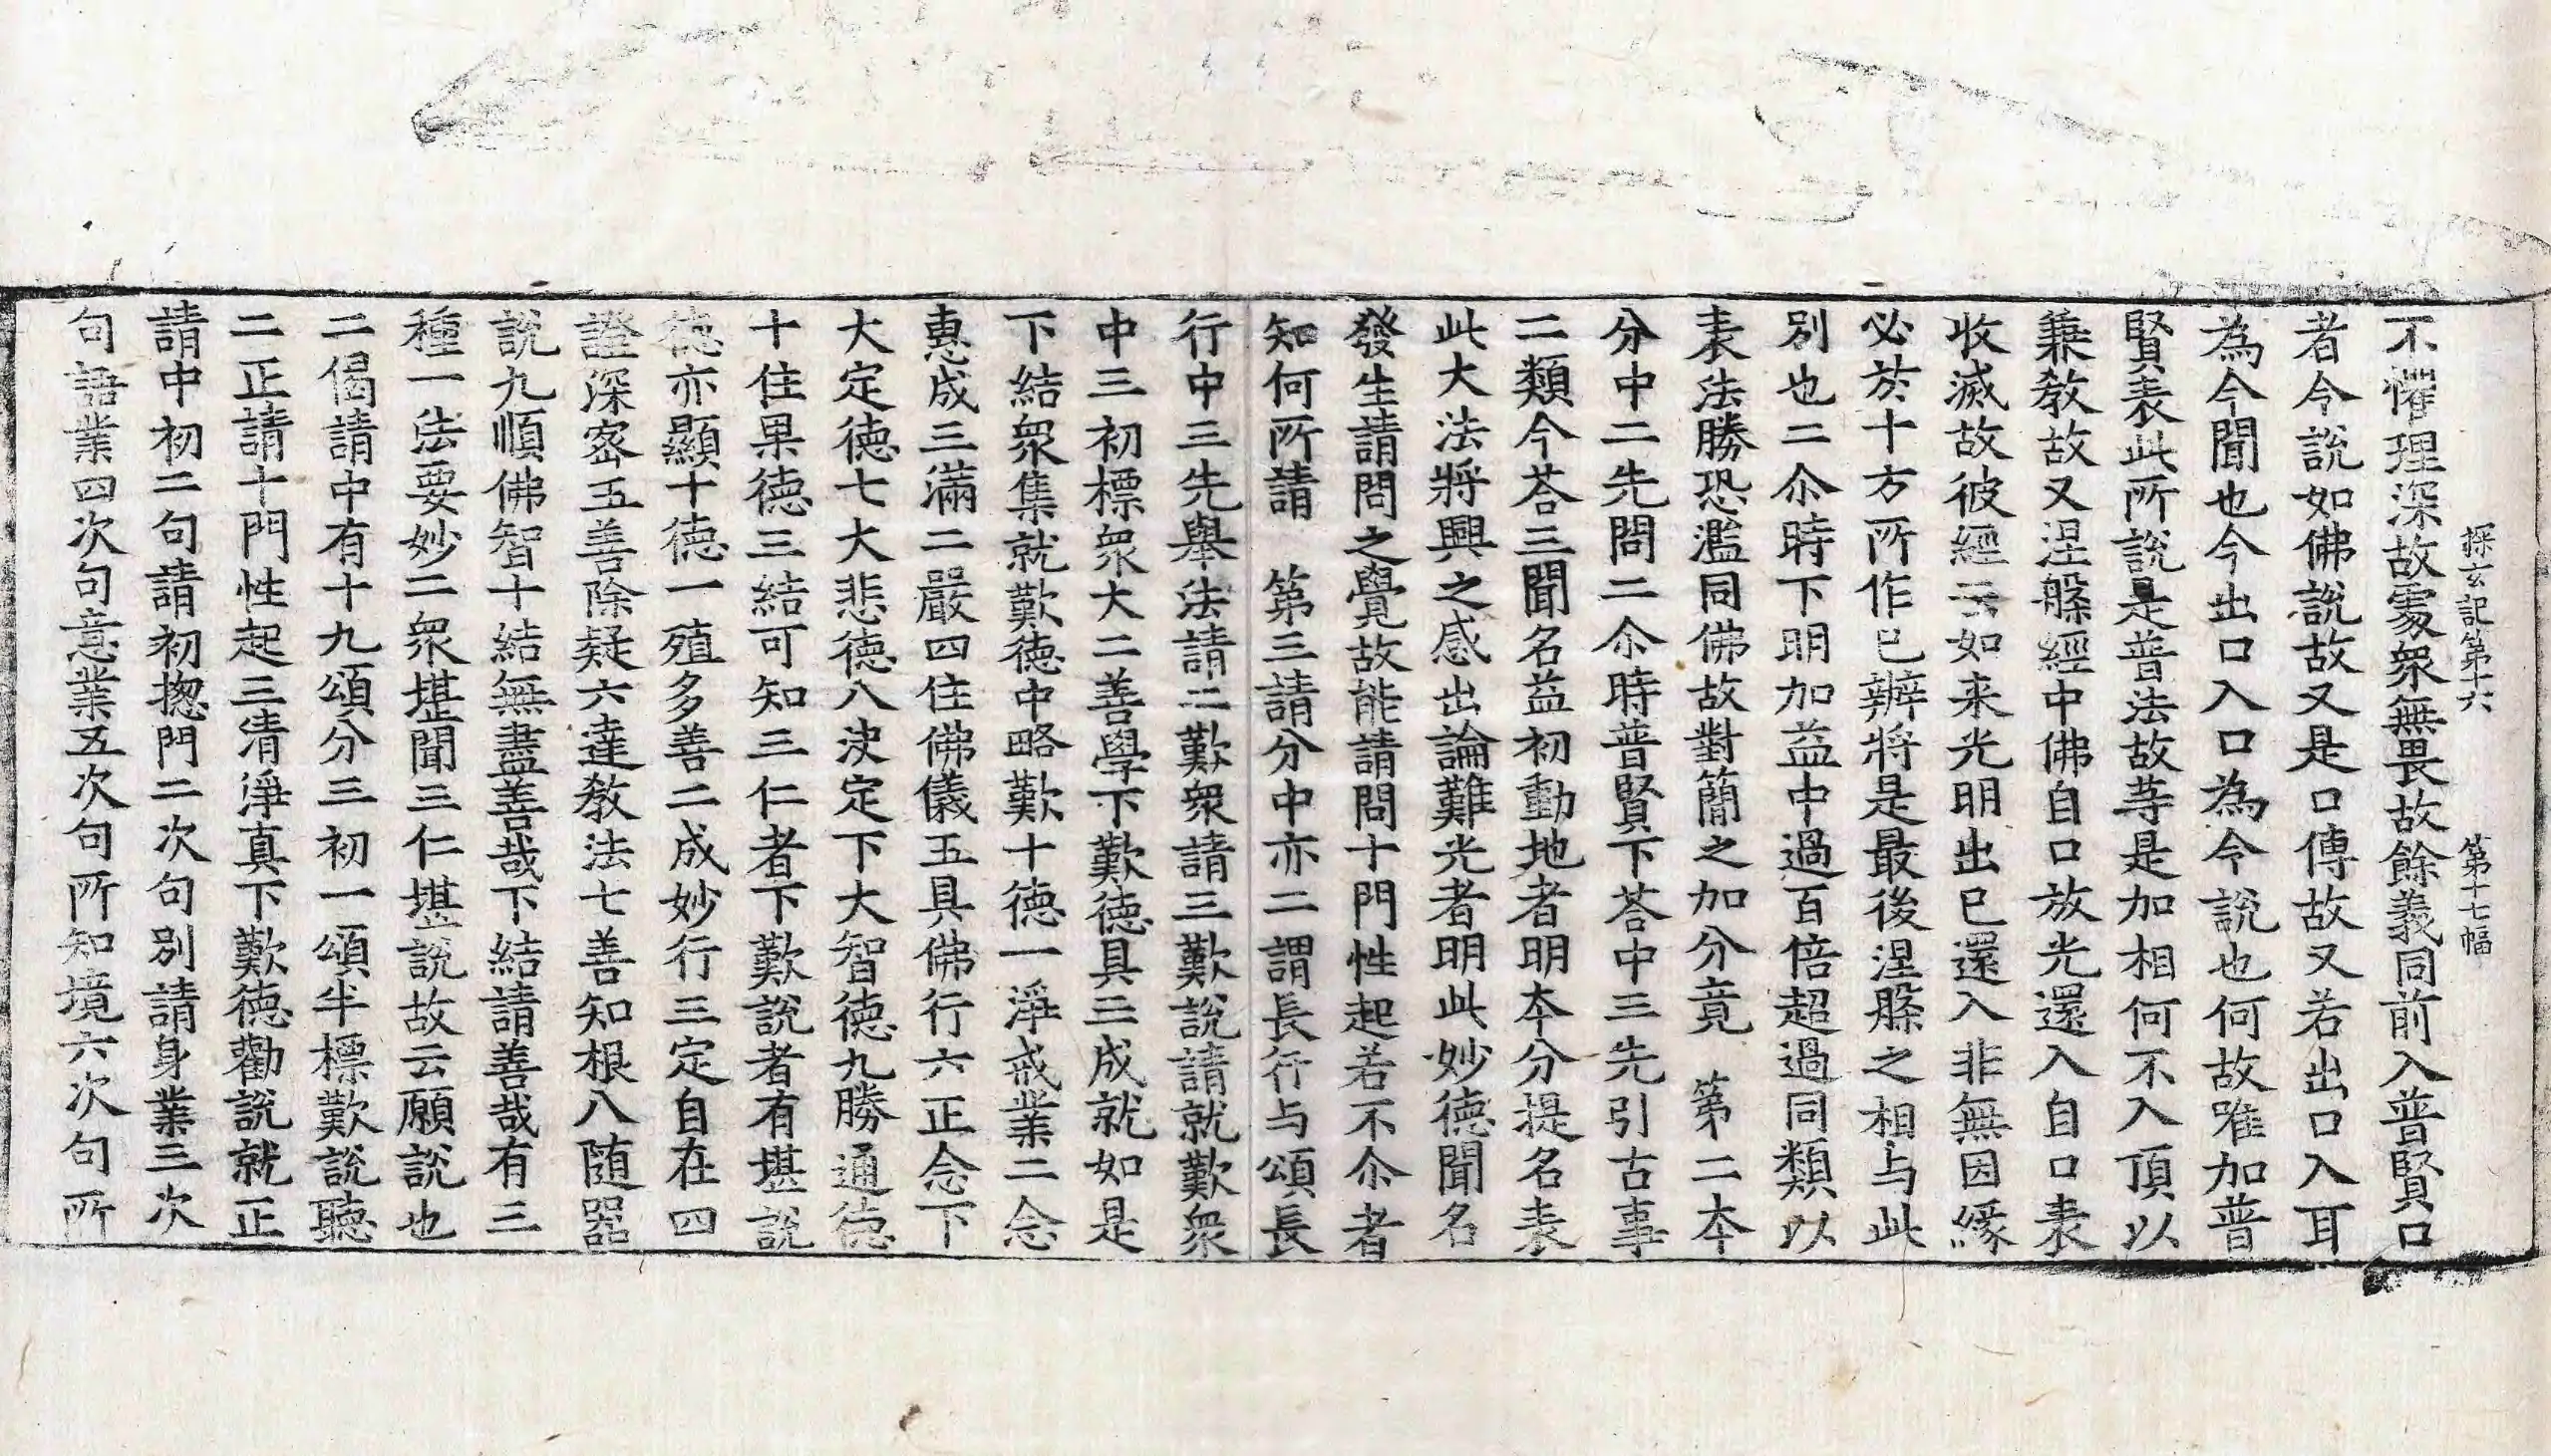 探玄記第十六　第十七幅
不懼理深故處衆無畏故餘義同前入普賢口
者今說如佛說故又是口傳故又若出口入耳
為今聞也今出口入口為今說也何故唯加普
賢表此所說是普法故䓁是加相何不入頂以
兼教故又涅槃經中佛自口放光還入自口表
收滅故彼經云如来光明出已還入非無因緣
必於十方所作已辨將是最後涅槃之相与此
別也二尒時下明加益中過百倍超過同類以
表法勝恐濫同佛故對簡之加分竟　第二本
分中二先問二尒時普賢下荅中三先引古事
二類今荅三聞名益初動地者明本分提名表
此大法將興之感出論難光者明此妙德聞名
發生請問之覺故能請問十門性起若不尒者
知何所請　第三請分中亦二謂長行与頌長
行中三先舉法請二歎衆請三歎說請就歎衆
中三初標衆大二善學下歎德具三成就如是
下結衆集就歎德中略歎十德一淨戒業二念
惠成三滿二嚴四住佛儀五具佛行六正念下
大定德七大悲德八决定下大智德九勝通德
十住果德三結可知三仁者下歎說者有堪說
德亦顯十德一殖多善二成妙行三定自在四
證深密五善除疑六達教法七善知根八随器
說九順佛智十結無盡善哉下結請善哉有三
種一法要妙二衆堪聞三仁堪說故云願說也
二偈請中有十九頌分三初一頌半標歎說聽
二正請十門性起三清淨真下歎德勸說就正
請中初二句請初揔門二次句別請身業三次
句語業四次句意業五次句所知境六次句所